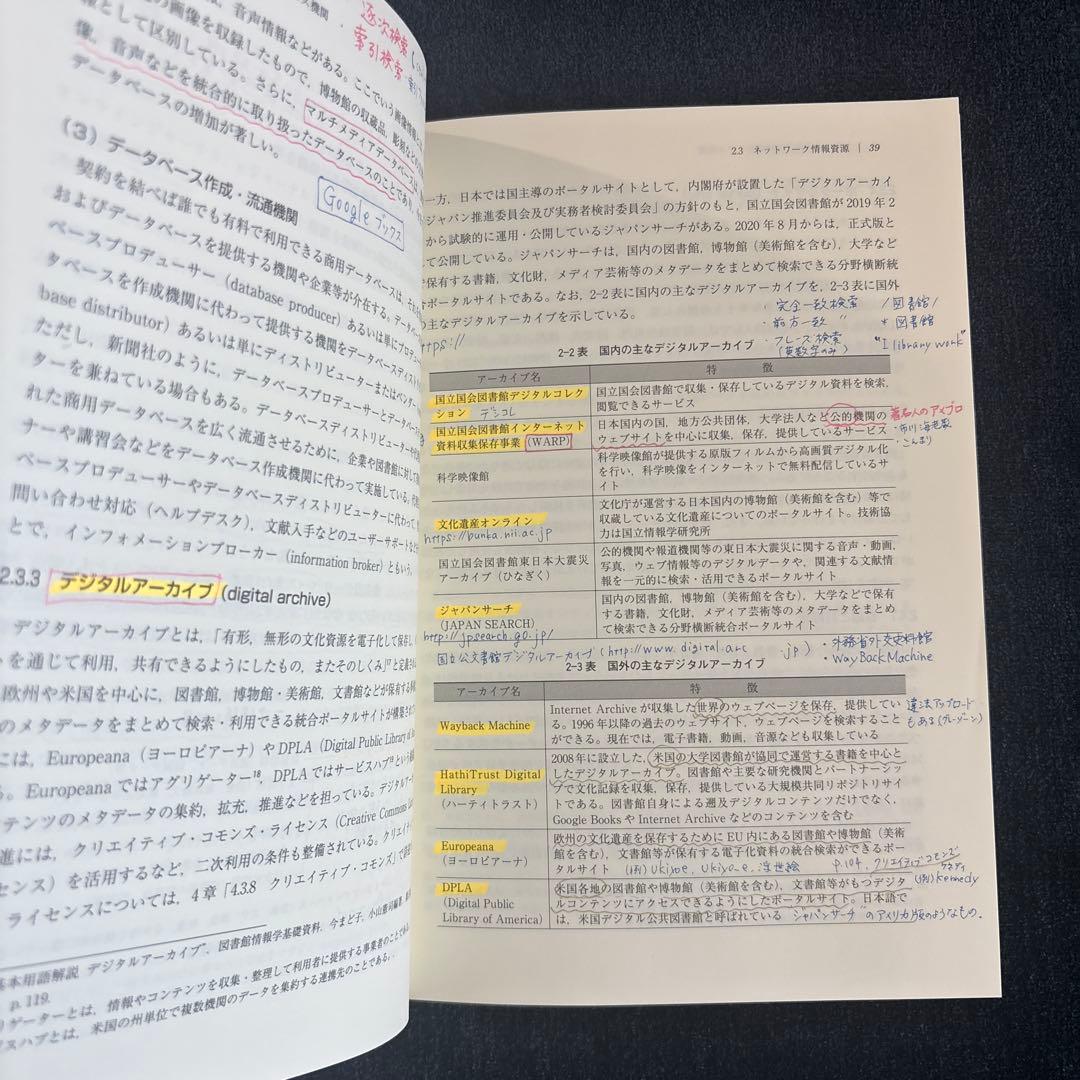 ス機関
逐次検索
索引検索
音声情報などがある。ここでいう画像情報
の画像を収録したもので，博物館の収蔵品，彫刻など
報として区別している。さらに，マルチメディアデータベース
像，音声などを統合的に取り扱ったデータベースのことであ
データベースの増加が著しい。
(3) データベース作成・流通機関
Googleブックス
契約を結べば誰でも有料で利用できる商用データベースは，
およびデータベースを提供する機関や企業等が介在する。データベー
ベースプロデューサー（database producer）あるいは単にプロデュー
タベースを作成機関に代わって提供する機関をデータベースディスト
base distributor）あるいは単にディストリビューターまたはベンダー
ただし，新聞社のように，データベースプロデューサーとデータベー
ターを兼ねている場合もある。データベースディストリビューターの
れた商用データベースを広く流通させるために，企業や図書館に対して
ナーや講習会などをデータベース作成機関に代わって実施している。
ベースプロデューサーやデータベースディストリビューターに代わって
問い合わせ対応（ヘルプデスク），文献入手などのユーザーサポートなど
とで，インフォメーションブローカー（information broker）ともいう。
2.3.3 デジタルアーカイブ (digital archive)
デジタルアーカイブとは，「有形，無形の文化資源を電子化して保存し
を通じて利用，共有できるようにしたもの，またそのしくみ」17と定義され
欧州や米国を中心に，図書館，博物館・美術館，文書館などが保有する
のメタデータをまとめて検索・利用できる統合ポータルサイトが構築され
には，Europeana（ヨーロピアーナ）やDPLA（Digital Public Library of
。Europeanaではアグリゲーター18，DPLAではサービスハブ19という
テンツのメタデータの集約，拡充，推進などを担っている。デジタルアー
進には，クリエイティブ・コモンズ・ライセンス（Creative Commons
センス）を活用するなど，二次利用の条件も整備されている。クリエイ
ライセンスについては，4章「4.3.8 クリエイティブ・コモンズ」で
基本用語解説 デジタルアーカイブ”．図書館情報学基礎資料．今まど子，小山憲司編著．
p.119.
ゲーターとは，情報やコンテンツを収集・整理して利用者に提供する事業者のことであ
スハブとは，米国の州単位で複数機関のデータを集約する連携先のことである。
2.3 ネットワーク情報資源 | 39
一方，日本では国主導のポータルサイトとして，内閣府が設置した「デジタルアーカイ
ジャパン推進委員会及び実務者検討委員会」の方針のもと，国立国会図書館が2019年2
から試験的に運用・公開しているジャパンサーチがある。2020年8月からは，正式版と
て公開している。ジャパンサーチは，国内の図書館，博物館（美術館を含む），大学など
や保有する書籍，文化財，メディア芸術等のメタデータをまとめて検索できる分野横断統
ポータルサイトである。なお，2-2表に国内の主なデジタルアーカイブを，2-3表に国外
主なデジタルアーカイブを示している。
https://
・完全一致検索 /図書館/
・前方一致 〃 *図書館
・フレーズ検索 "I library work"
(英数字のみ)
2-2表 国内の主なデジタルアーカイブ
アーカイブ名 特 徴
国立国会図書館デジタルコレク
ション デジコレ
国立国会図書館で収集・保存しているデジタル資料を検索，
閲覧できるサービス
国立国会図書館インターネット
資料収集保存事業（WARP）
日本国内の国，地方公共団体，大学法人など公的機関の
ウェブサイトを中心に収集，保存，提供しているサービス
著名人のアメブロ
・市川海老蔵
・こんまり
科学映像館
科学映像館が提供する原版フィルムから高画質デジタル化
を行い，科学映像をインターネットで無料配信しているサ
イト
文化遺産オンライン
https://bunka.nii.ac.jp
文化庁が運営する日本国内の博物館（美術館を含む）等で
収蔵している文化遺産についてのポータルサイト。技術協
力は国立情報学研究所
国立国会図書館東日本大震災
アーカイブ（ひなぎく）
公的機関や報道機関等の東日本大震災に関する音声・動画，
写真，ウェブ情報等のデジタルデータや，関連する文献情
報を一元的に検索・活用できるポータルサイト
ジャパンサーチ
(JAPAN SEARCH)
http://jpsearch.go.jp/
国内の図書館，博物館（美術館を含む），大学などで保有
する書籍，文化財，メディア芸術等のメタデータをまとめ
て検索できる分野横断統合ポータルサイト
国立公文書館デジタルアーカイブ(http://www.digital.arc .jp)
・外務省外交史料館
・WayBackMachine
2-3表 国外の主なデジタルアーカイブ
アーカイブ名 特 徴
Wayback Machine
Internet Archiveが収集した世界のウェブページを保存，提供してい
る。1996年以降の過去のウェブサイト，ウェブページを検索すること
ができる。現在では，電子書籍，動画，音源なども収集している
違法アップロード
もある(グレーゾーン)
HathiTrust Digital
Library
（ハーティトラスト）
2008年に設立した，米国の大学図書館が協同で運営する書籍を中心と
したデジタルアーカイブ。図書館や主要な研究機関とパートナーシッ
プで文化記録を収集，保存，提供している大規模共同リポジトリサイ
トである。図書館自身による遡及デジタルコンテンツだけでなく，
Google BooksやInternet Archiveなどのコンテンツを含む
Europeana
（ヨーロピアーナ）
欧州の文化遺産を保存するためにEU内にある図書館や博物館（美術
館を含む），文書館等が保有する電子化資料の統合検索ができるポー
タルサイト (例) Ukiyoe, Ukiyo-e, 浮世絵 p.104, クリエイティブコモンズ
DPLA
(Digital Public
Library of America)
米国各地の図書館や博物館（美術館を含む），文書館等がもつデジタ
ルコンテンツにアクセスできるようにしたポータルサイト。日本語で
は，米国デジタル公共図書館と呼ばれている "ジャパンサーチ"のアメリカ版のようなもの.
ケネディ
(例) Kennedy